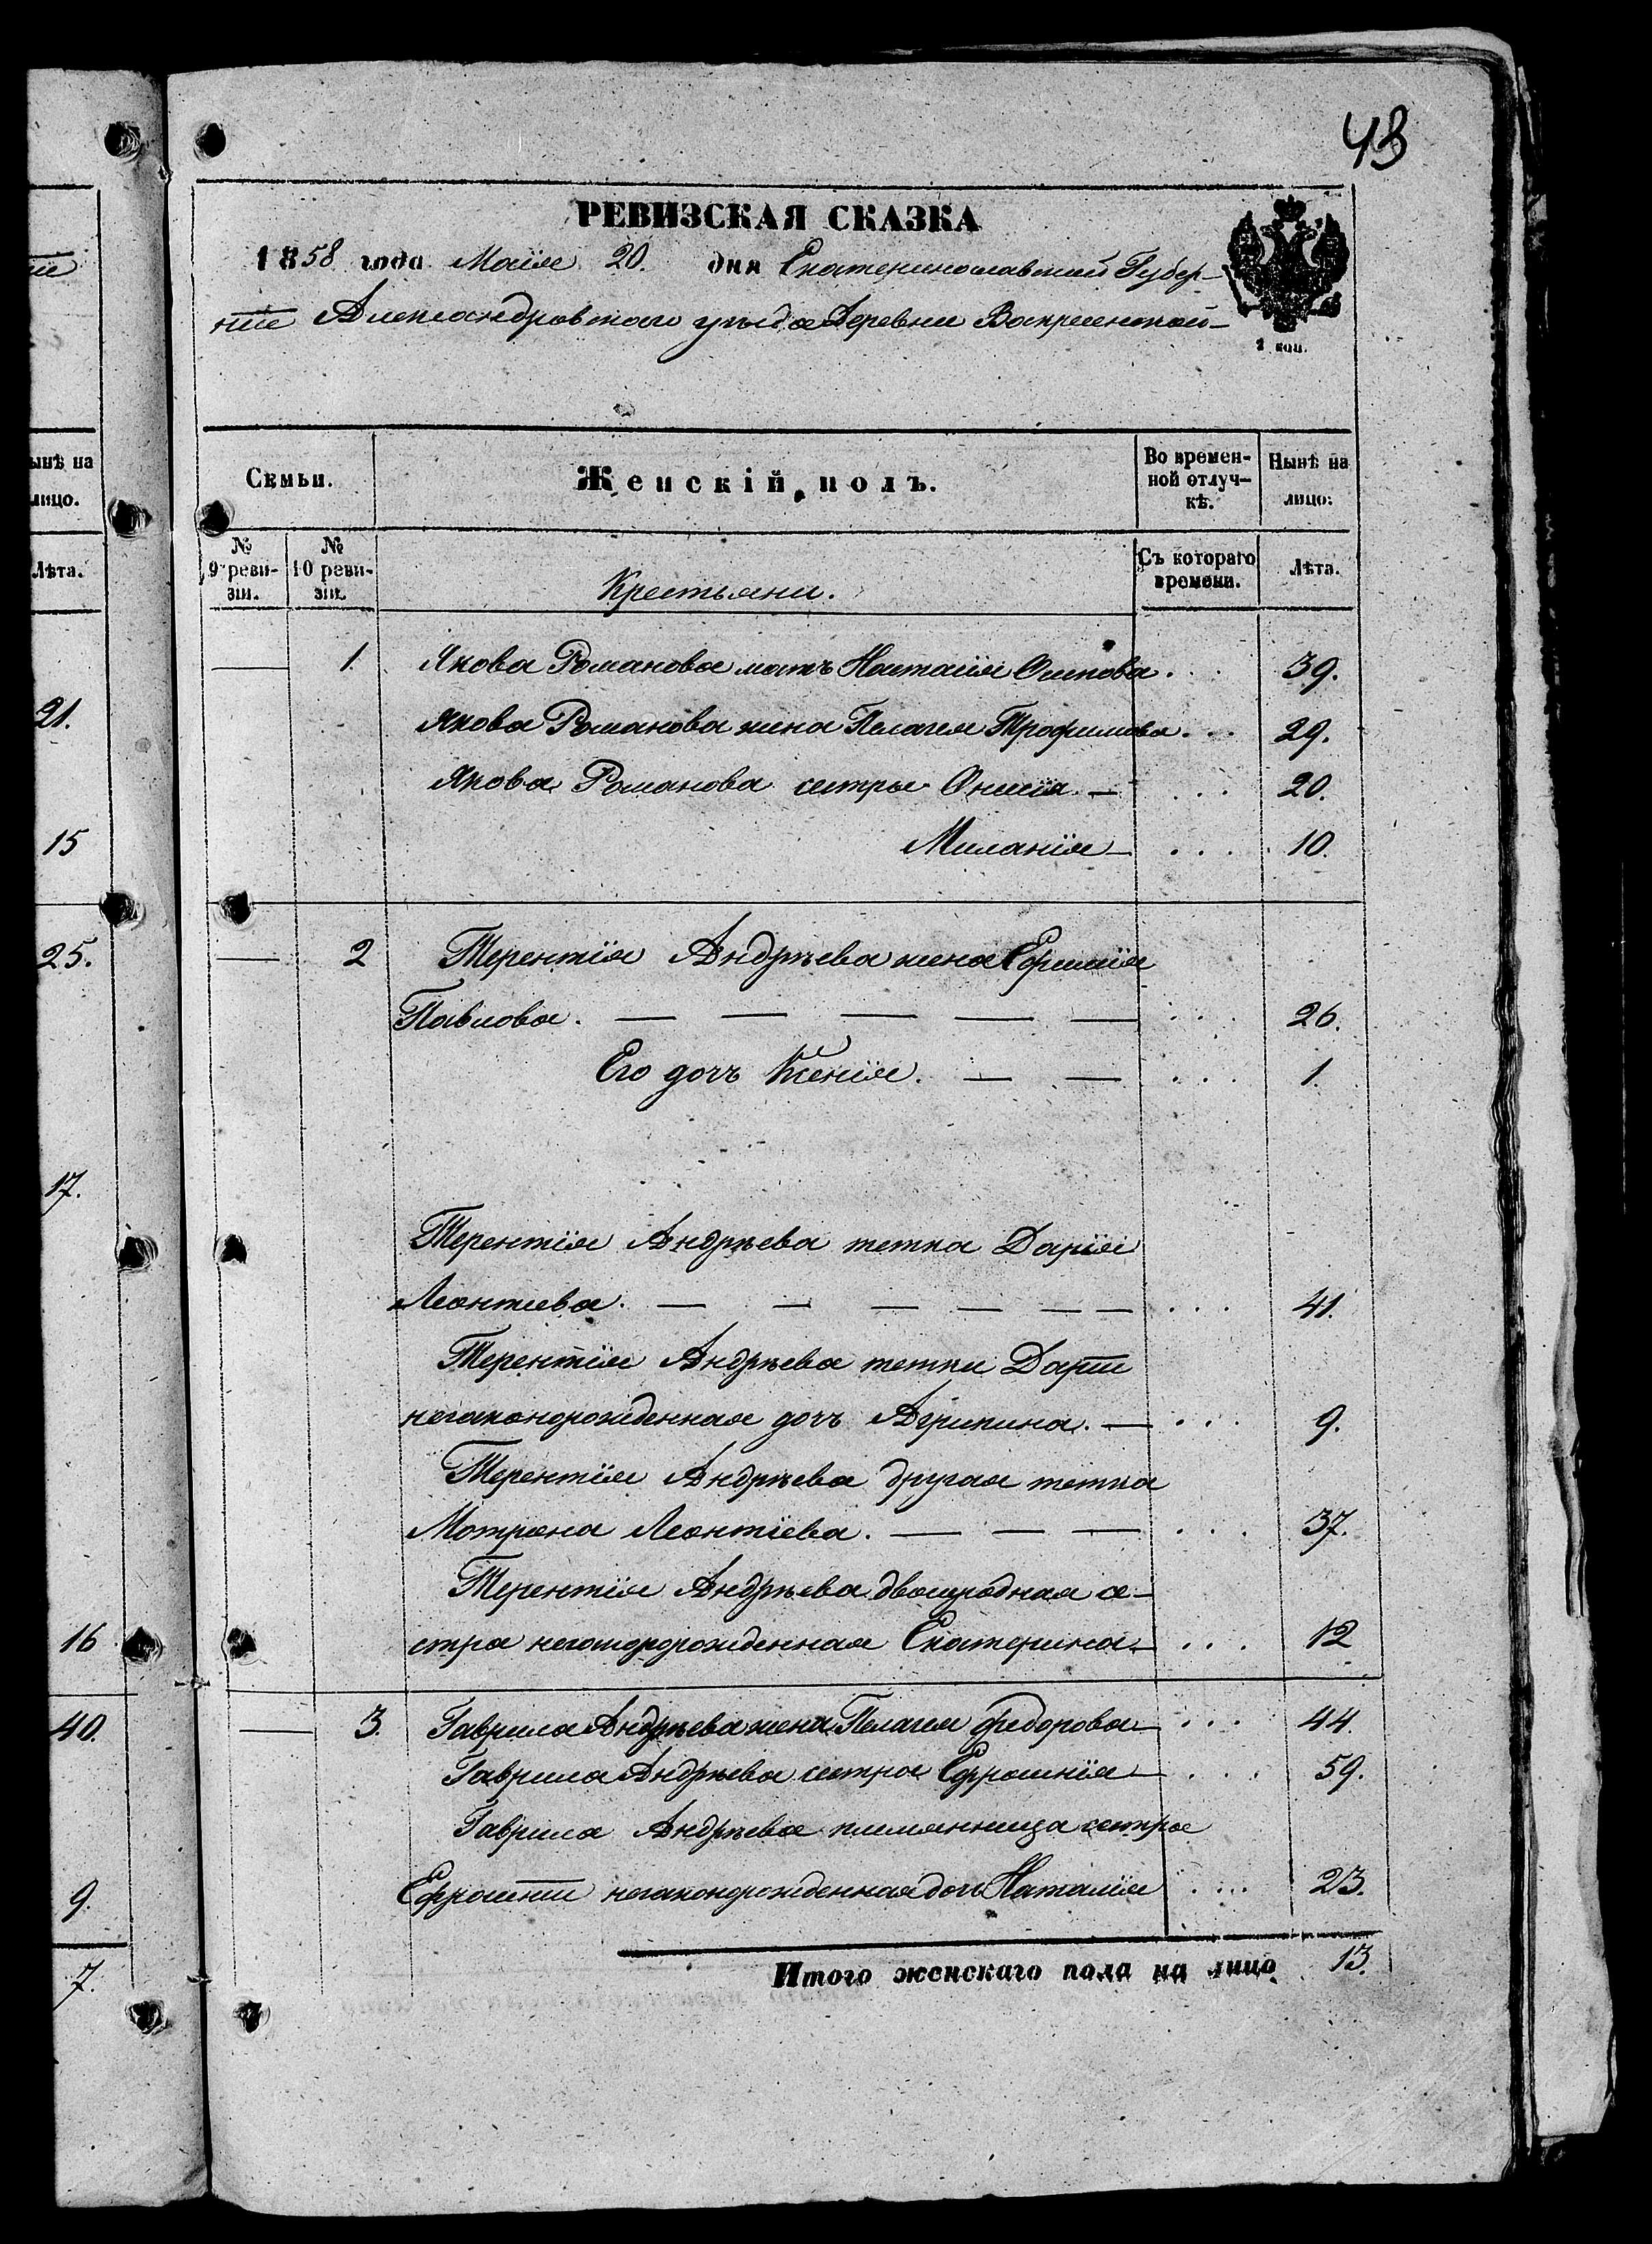 43
РЕВИЗСКАЯ СКАЗКА
1858 года Маія 20. дня Екатеринославской Губер-
ніи Александровскаго уѣзда Деревни Воскресенской
1 коп.
Семьи.
Женскій полъ.
Во времен-
ной отлуч-
кѣ.
Нынѣ на
лицо:
№
9 реви-
зіи.
№
10 реви-
зіи.
Крестьяни.
Съ котораго
времени.
Лѣта.
1. Якова Романова мать Настасія Осипова 39.
Якова Романова жена Пелагея Трофимова 29.
Якова Романова сестры Онисія 20.
Миланія 10.
2 Терентія Андрѣева жена Ефимія
Павлова. 26.
Его дочь Ксенія. 1.
Терентія Андрѣева тетка Дарія
Леонтіева. 41.
Терентія Андрѣева тетки Даріи
незаконорожденная дочь Агрипина. 9.
Терентія Андрѣева другая тетка
Мотрона Леонтіева. 37.
Терентія Андрѣева двоюродная се-
стра незаконорожденная Екатерина 12
3. Гаврила Андрѣева жена Пелагея Федорова 44.
Гаврила Андрѣева сестра Ефросинія 59.
Гаврила Андрѣева племянница сестры
Ефросиніи незаконорожденная дочь Наталія 23.
Итого женскаго пола на лицо 13.
ніи
ынѣ на
лицо.
Лѣта.
21.
15
25.
17.
16
40.
9.
7.